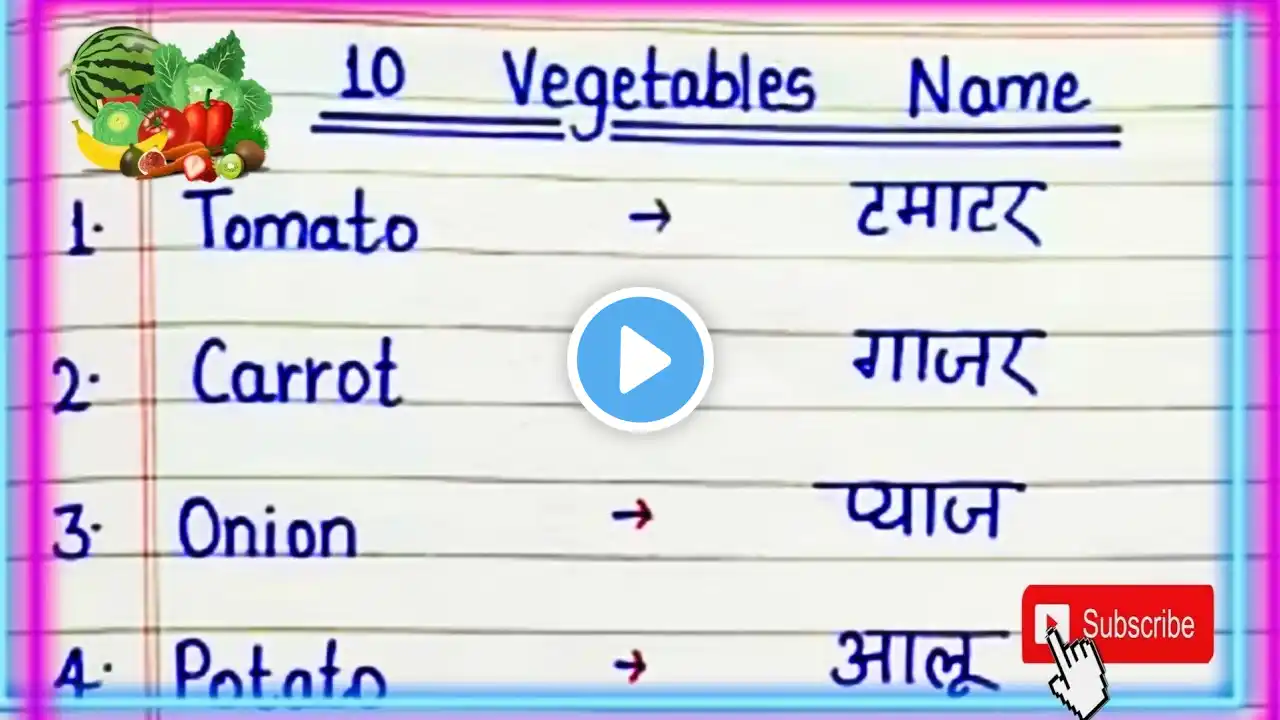 10 Vegetables Name
1. Tomato → टमाटर
2. Carrot गाजर
3. Onion → प्याज
4. Potato → आलू
Subscribe